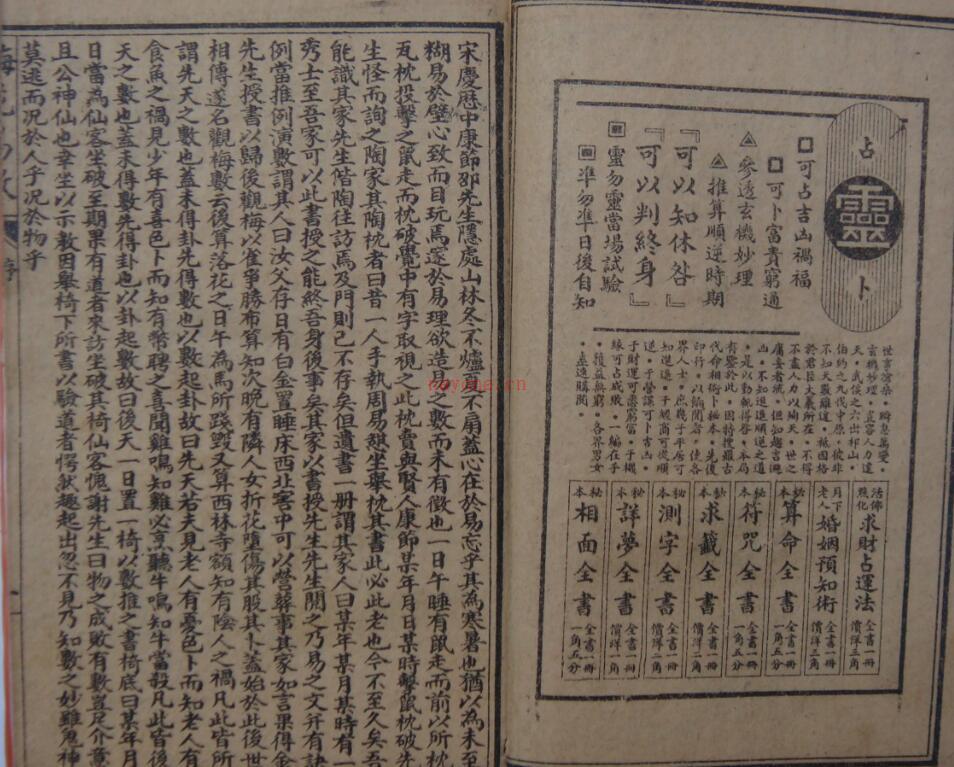 占靈卜
可占吉凶禍福
可卜富貴窮通
參透玄機妙理
推算順逆時期
『可以知休咎』
『可以判終身』
靈勿靈當場試驗
準勿準日後自知
世事滄桑，瞬息萬變，
玄機妙理，豈容人力違
天，武侯之六出祁山，
伯約之九伐中原，彼非
不知天意難違，祇因格
於君臣大義所在，不得
不盡人力以殉天，世之
庸妄者流，但知趨吉避
凶，不知進退順逆之道
，是以動輒得咎，本局
有鑒於此，因特搜羅古
代命相術卜秘本，先後
印行，以餉閱者，使各
界人士，庶幾于平居可
知進退，于商可從順
逆，于營謀可卜吉凶，
于財運可窮富，于機
緣可占成敗，一編在手
，獲益無窮，各界男女
，速購閱。
活佛照化求財占運法 全書一冊價洋三角
月下老人婚姻預知術 全書一冊價洋三角
秘本算命全書 全書一冊一角五分
秘本符咒全書 全書一冊一角五分
秘本求籤全書 全書一冊價洋二角
秘本測字全書 全書一冊價洋二角
秘本詳夢全書 全書一冊價洋二角
秘本相面全書 全書一冊一角五分
宋慶歷中康節邵先生隱處山林冬不爐夏不扇蓋心在於易忘乎其為寒暑也猶以為未至
糊易於壁心致而目玩焉邃於易理欲造易之數而未有徵也一日午睡有鼠走而前以所枕
瓦枕投擊之鼠走而枕破覺中有字取視之此枕賣與賢人康節某年月日某時擊鼠枕破先
生怪而詢之陶家其陶枕者曰昔一人手執周易憩坐舉枕其書此必此老也今不至久矣吾
能識其家先生偕陶往訪焉及門則已不存矣但遺書一冊謂其家人曰某年某月某時有一
秀士至吾家可以此書授之能終吾身後事矣其家以書授先生先生閱之乃易之文并有訣
例當推例演數謂其人曰汝父存日有白金置睡床西北窖中可以營葬事其家如言果得金
先生授書以歸後觀梅以雀爭勝布算知次晚有隣人女折花墮傷其股其卜蓋始於此後世
相傳遂名觀梅數云後算落花之日午為馬所踐毀又算西林寺額知有陰人之禍凡此皆所
謂先天之數也蓋未得卦先得數也以數起卦故曰先天若夫見老人有憂色卜而知老人有
食魚之禍見少年有喜色卜而知有幣聘之喜聞雞鳴知雞必烹聽牛鳴知牛當殺凡此皆後
天之數也蓋未得數先得卦也以卦起數故曰後天一日置一椅以數推之書椅底曰某年月
日當為仙客坐破至期果有道者來訪坐破其椅仙客愧謝先生曰物之成敗有數豈足介意
且公神仙也幸坐以示教因舉椅下所書以驗道者愕然趨起出忽不見乃知數之妙雖鬼神
莫逃而況於人乎況於物乎
nayona.cn